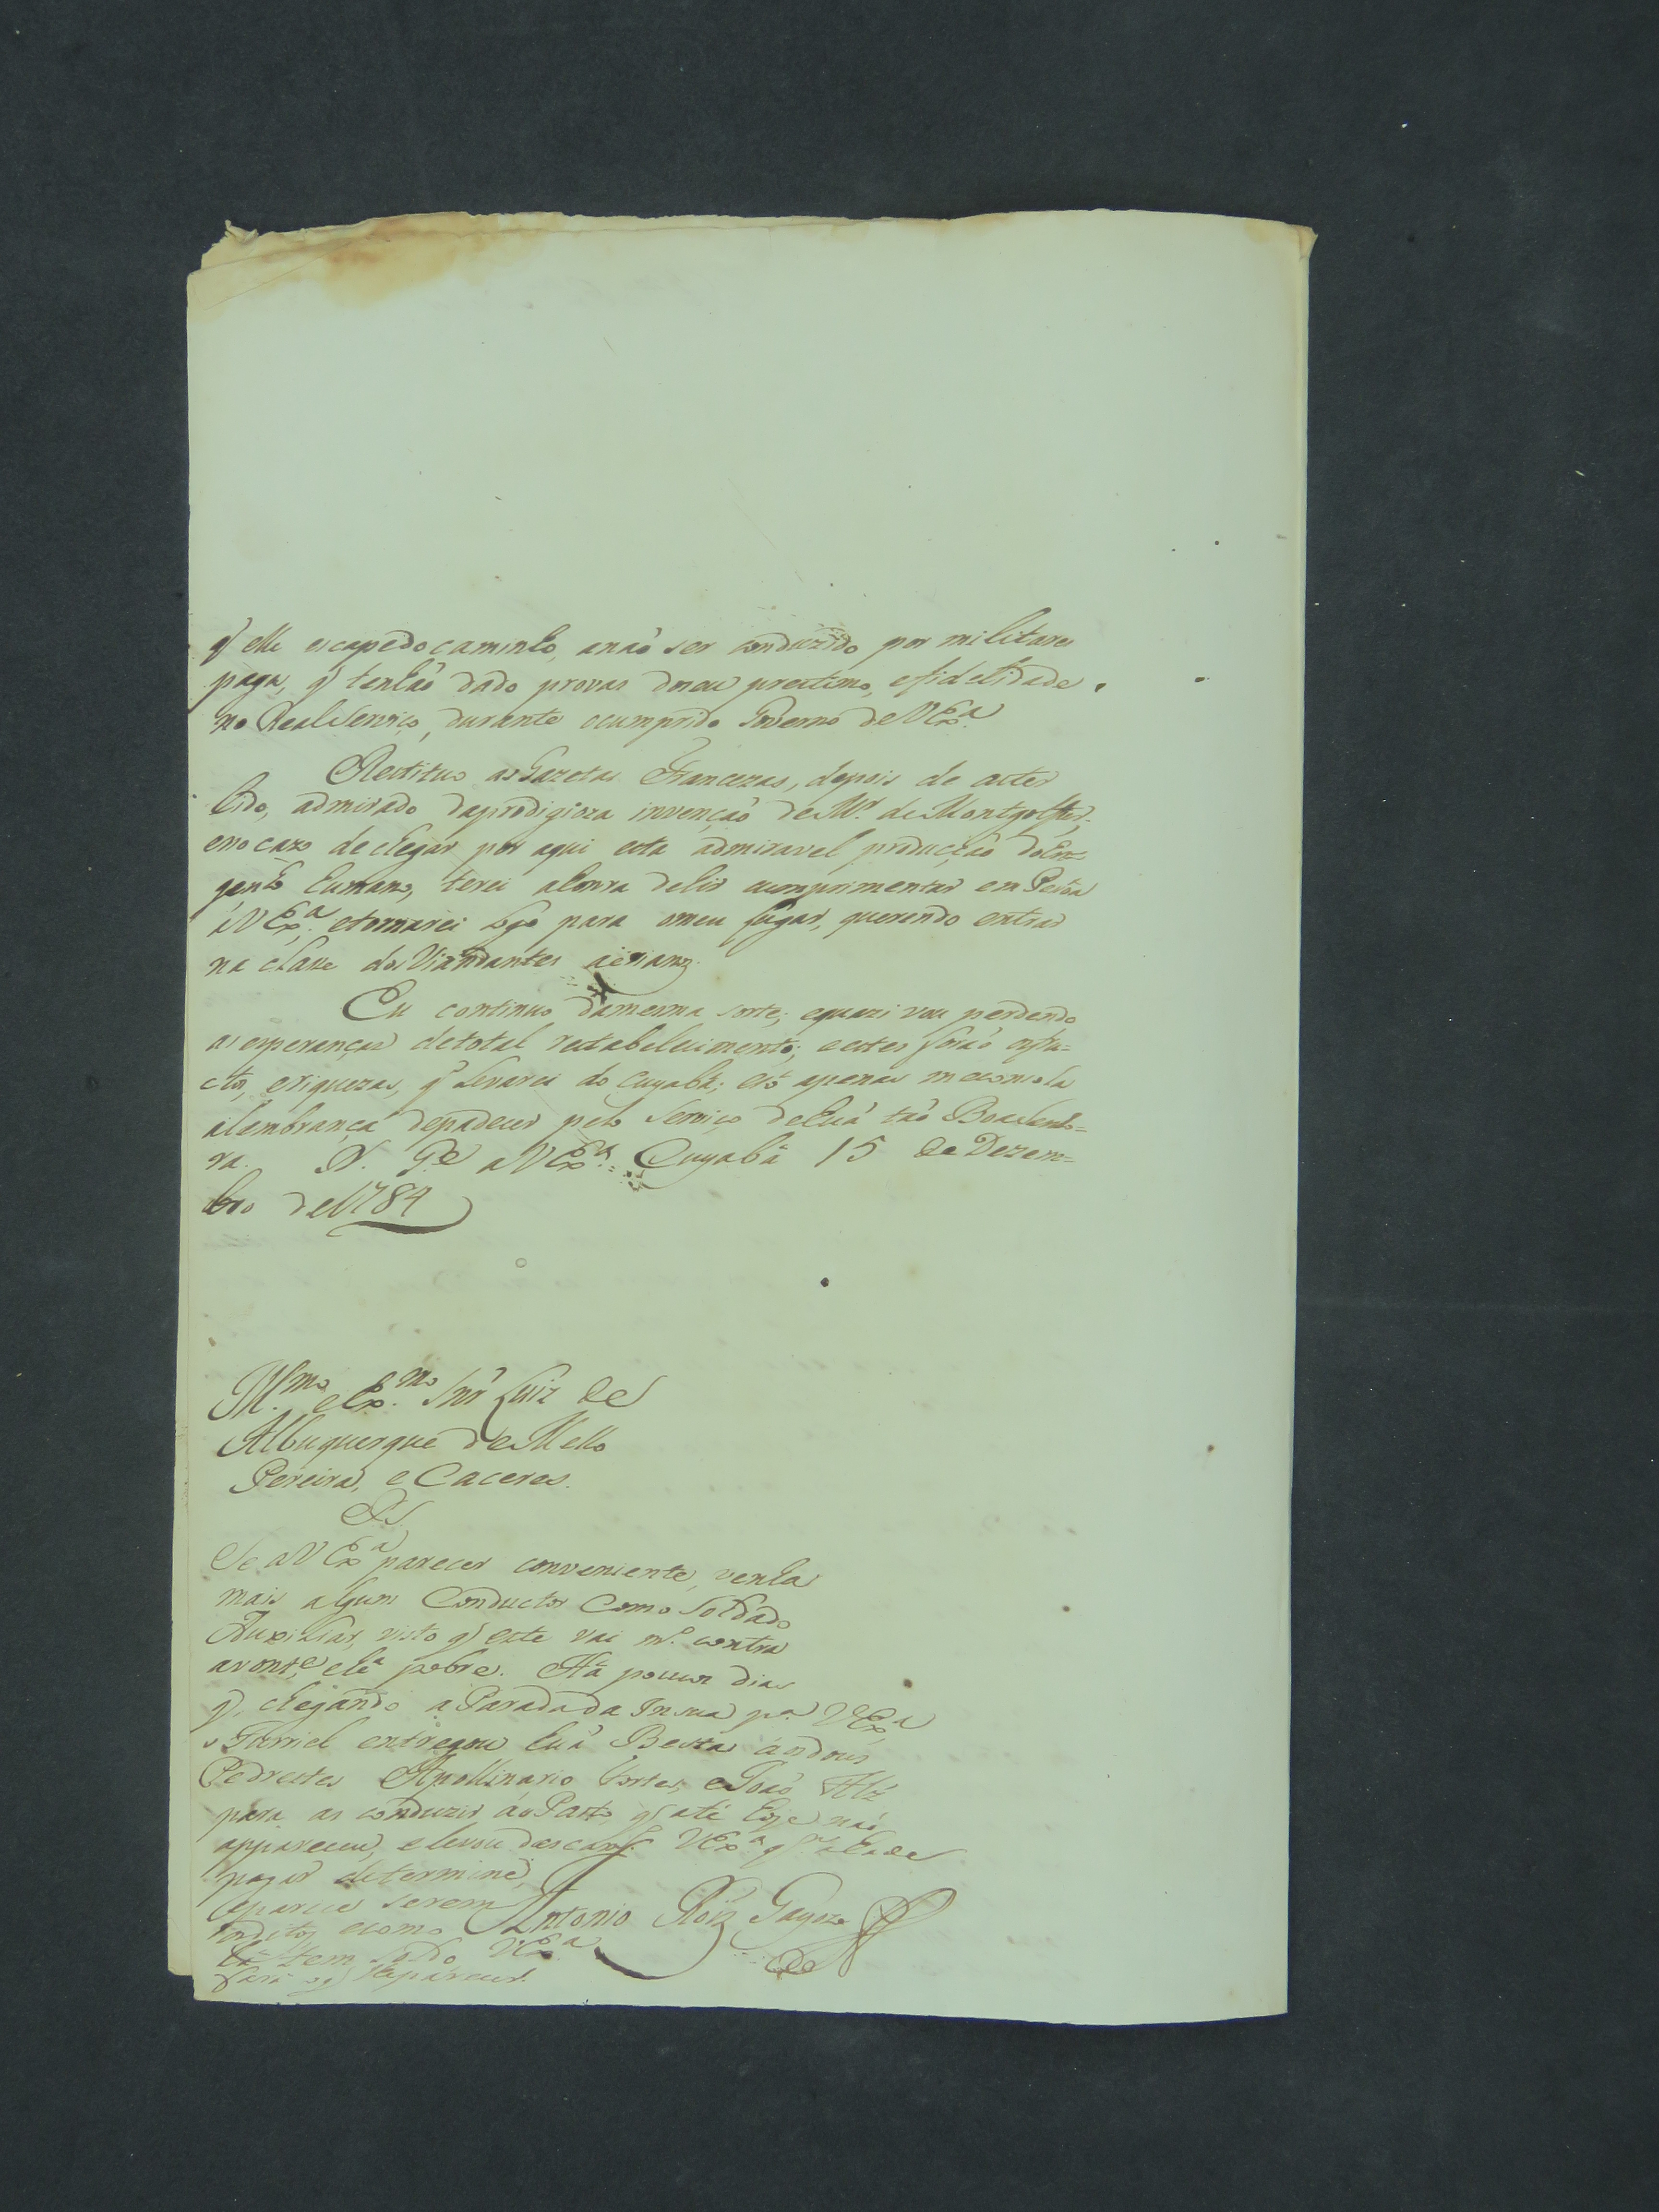 q̃ elle escape do caminho, a naõ ser conduzido por militares
paga, q̃ tenhaõ dado provas do seu prestimo, e fidelidade
no Real Serviço, durante o cumprido Governo de VEx.ª
Restituo as Gazetas Francezas, depois de as ter
lido, admirado da prodigioza invençaõ de M.r de Montgolfier,
e no cazo de chegar por aqui esta admiravel producçaõ do En-
genho humano, terei a honra de hir a cumprimentar em Pessoa
a VEx.ª, e tornarei logo para o meu lugar, querendo entrar
na classe dos Viandantes aérianos.
Eu continuo da mesma sorte, e quazi vou perdendo
as esperanças de total restabelecimento; e estes seraõ os fru-
ctos, e riquezas, q̃ levarei do Cuyabá; e só apenas me consola
a lembrança de padecer pelo Serviço de huã taõ Boa Senho-
ra. D. G.e a VEx.ª Cuyabá 15 de Dezem-
bro de 1784
Ill.mo e Ex.mo Snr̃ Luiz de
Albuquerque de Mello
Pereira, e Caceres.
P.S.
Se a VEx.ª parecer conveniente, venha
mais algum Conductor como Soldado
Auxiliar, visto q̃ este vai m.to contra
a vont.e e he pobre. Há poucos dias
q̃, chegando a Parada da Insua p.ª VEx.ª
o Furriel entregou huã Besta a dous
Pedrestes Apollinario Cortes, e Joaõ Alz̃
para as conduzir ao Pasto, q̃ até hoje naõ
appareceu, e levou descam.º VEx.ª q.m a ha de
pagar determine,
e parece serem
os ditos, e como
lá tem soldo VEx.ª
fará o q̃ lhe parecer.
Antonio Roiz Gayozo